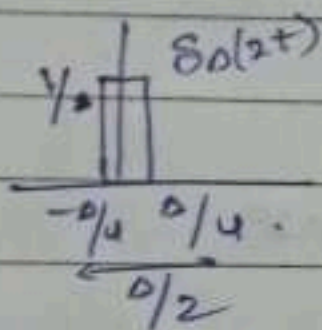 δΔ(2t)
1/Δ
-Δ/4 Δ/4.
Δ/2